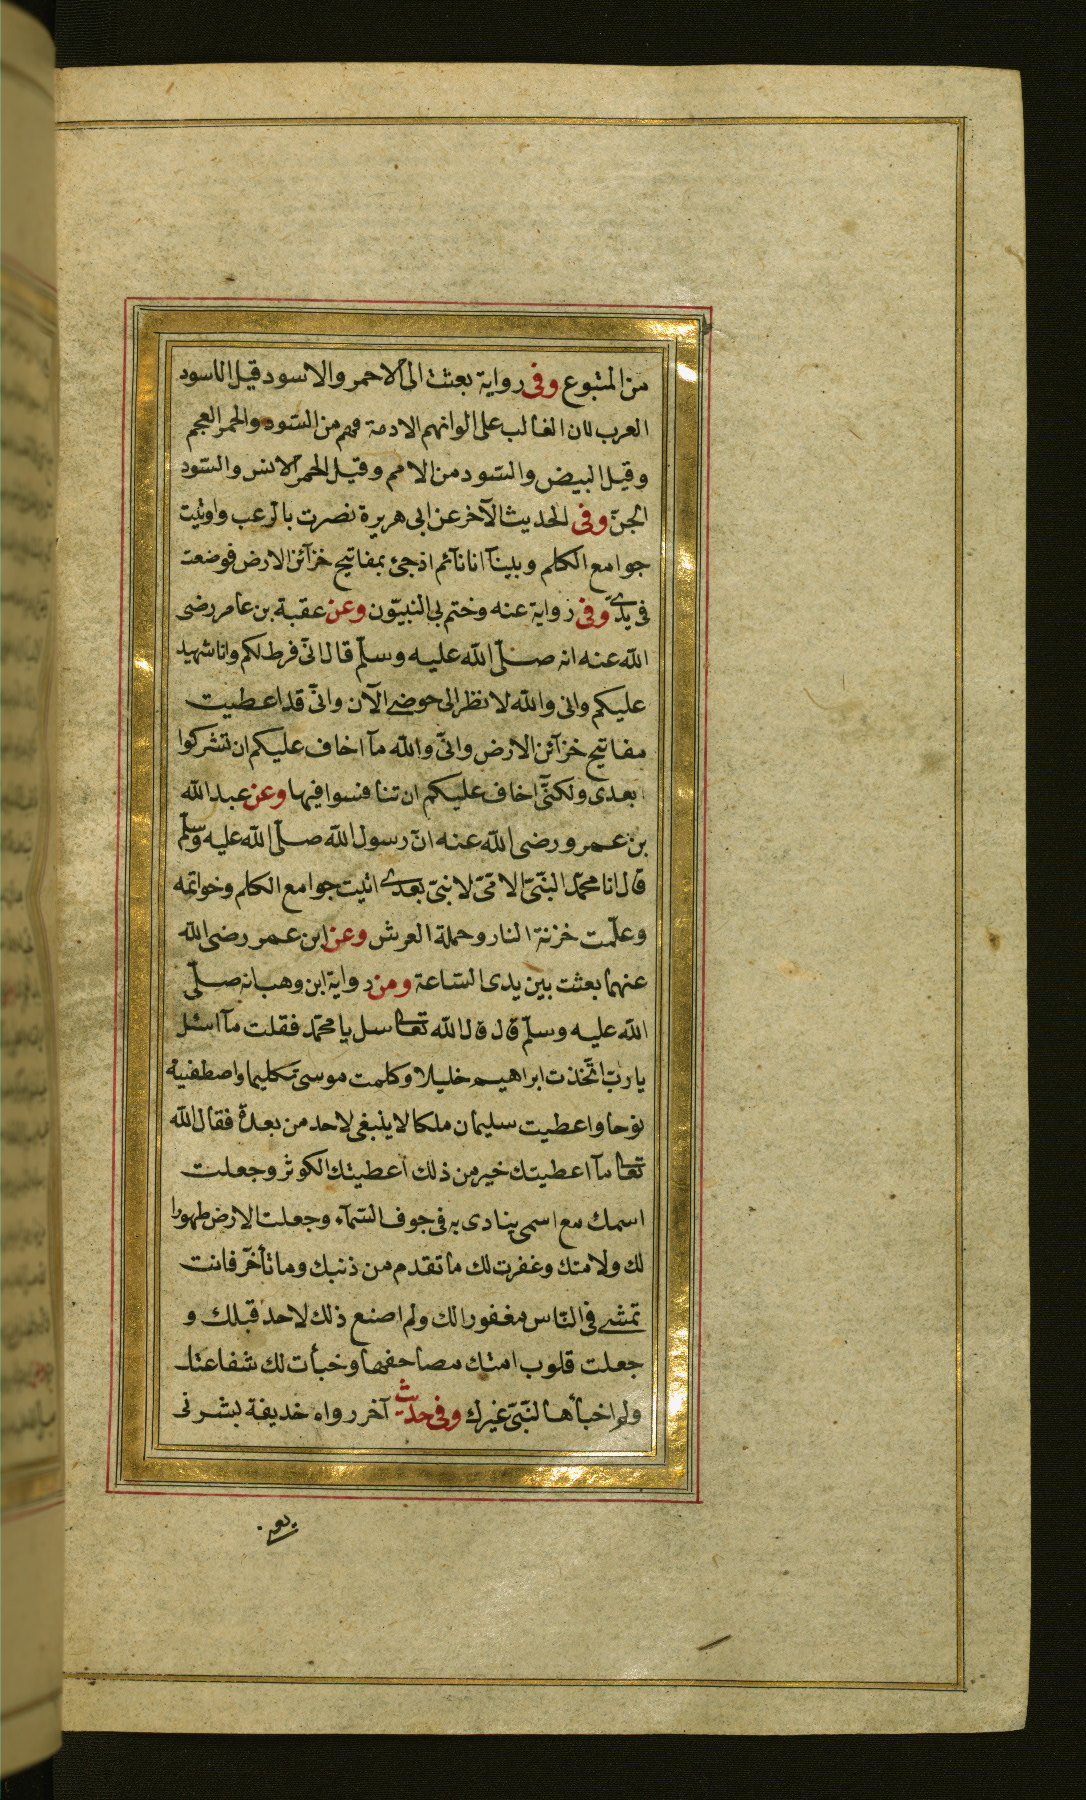 من المتبوع وفى رواية بعثت الى الاحمر والاسود قيل الاسود
العرب لان الغالب على الوانهم الادمة فهم من السود والحمر العجم
وقيل البيض والسود من الامم وقيل الحمر الانس والسود
الجن وفى الحديث الآخر عن ابى هريرة نصرت بالرعب واوتيت
جوامع الكلم وبينآ انا نآئم اذ جئ بمفاتيح خزآئن الارض فوضعت
فى يدى وفى رواية عنه وختم بى النبيّون وعن عقبة بن عامر رضى
الله عنه انه صلّى الله عليه وسلّم قال انّى فرط لكم وانا شهيد
عليكم وانى والله لانظر الى حوضى الآن وانّى قد اعطيت
مفاتيح خزآئن الارض وانّى والله مآ اخاف عليكم ان تشركوا
بعدى ولكنّى اخاف عليكم ان تنافسوا فيها وعن عبد الله
بن عمرو رضى الله عنه انّ رسول الله صلّى الله عليه وسلّم
قال انا محمّد النبّىّ الامّىّ لا نبىّ بعدى اتيت جوامع الكلم وخواتمه
وعلّمت خزنة النار وحملة العرش وعن ابن عمر رضى الله
عنهما بعثت بين يدى الساعة ومن رواية ابن وهب انه صلّى
الله عليه وسلّم قال قال الله تعالى سل يا محمّد فقلت مآ اسئل
يا ربّ اتّخذت ابراهيم خليلا وكلمت موسى تكليما واصطفيت
نوحا واعطيت سليمان ملكا لا ينبغى لاحد من بعده فقال الله
تعالى مآ اعطيتك خير من ذلك اعطيتك الكوثر وجعلت
اسمك مع اسمى ينادى به فى جوف السمآء وجعلت الارض طهورا
لك ولامتك وغفرت لك ما تقدم من ذنبك وما تأخّر فانت
تمشى فى النّاس مغفورا لك ولم اصنع ذلك لاحد قبلك و
جعلت قلوب امتك مصاحفها وخبأت لك شفاعتك
ولم اخبأها لنبّىّ غيرك وفى حديث آخر رواه حذيفة بشرنى